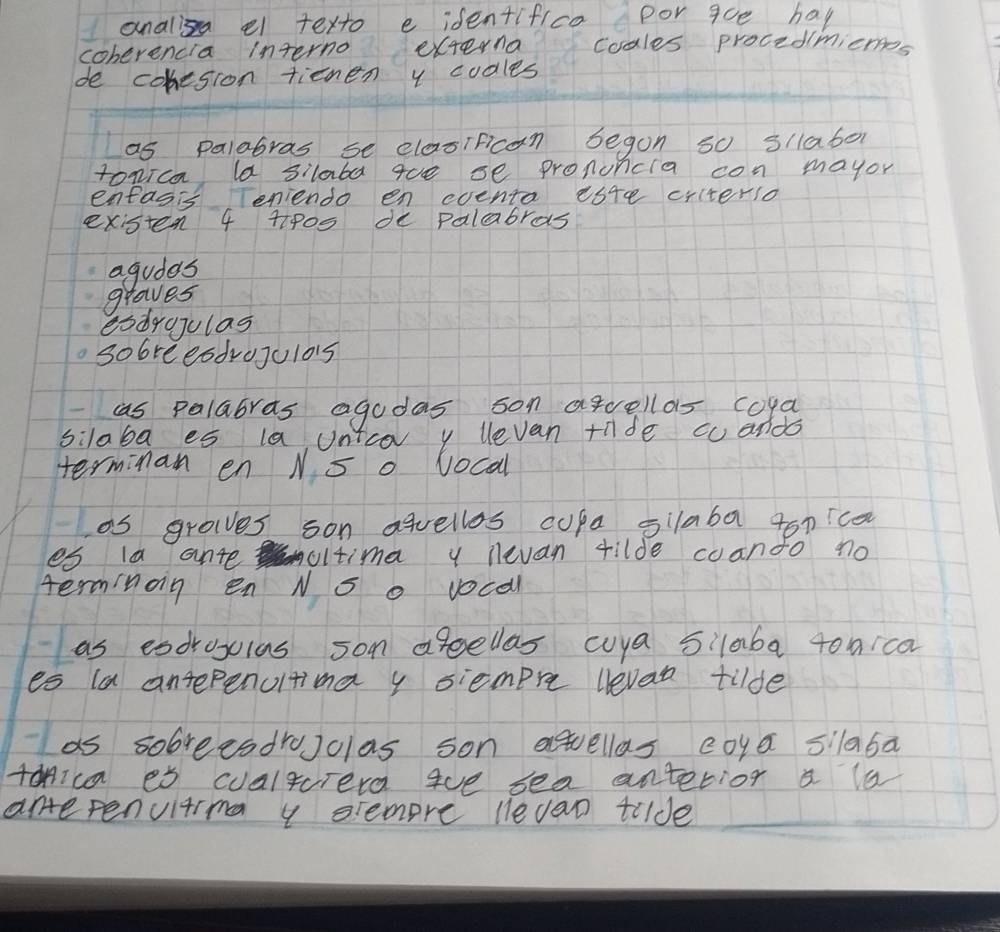 1 analisa el texto e identifica por que hay
coherencia interna externa cuales procedimientos
de cohesion tienen y cuales
Las palabras se clasifican segun su silaba
tonica, la silaba que se pronuncia con mayor
enfasis Teniendo en cuenta este criterio
existen 4 tipos de palabras:
• agudas
• graves
• esdrujulas
• sobreesdrujulas
- Las palabras agudas son aquellas cuya
silaba es la unica y llevan tilde cuando
terminan en N, S o vocal
- Las graves son aquellas cuya silaba tonica
es la ante ultima y llevan tilde cuando no
terminan en N S o vocal
- Las esdrujulas son aquellas cuya silaba tonica
es la antepenultima y siempre llevan tilde
- Las sobreesdrujulas son aquellas cuya silaba
tonica es cualquiera que sea anterior a la
antepenultima y siempre llevan tilde